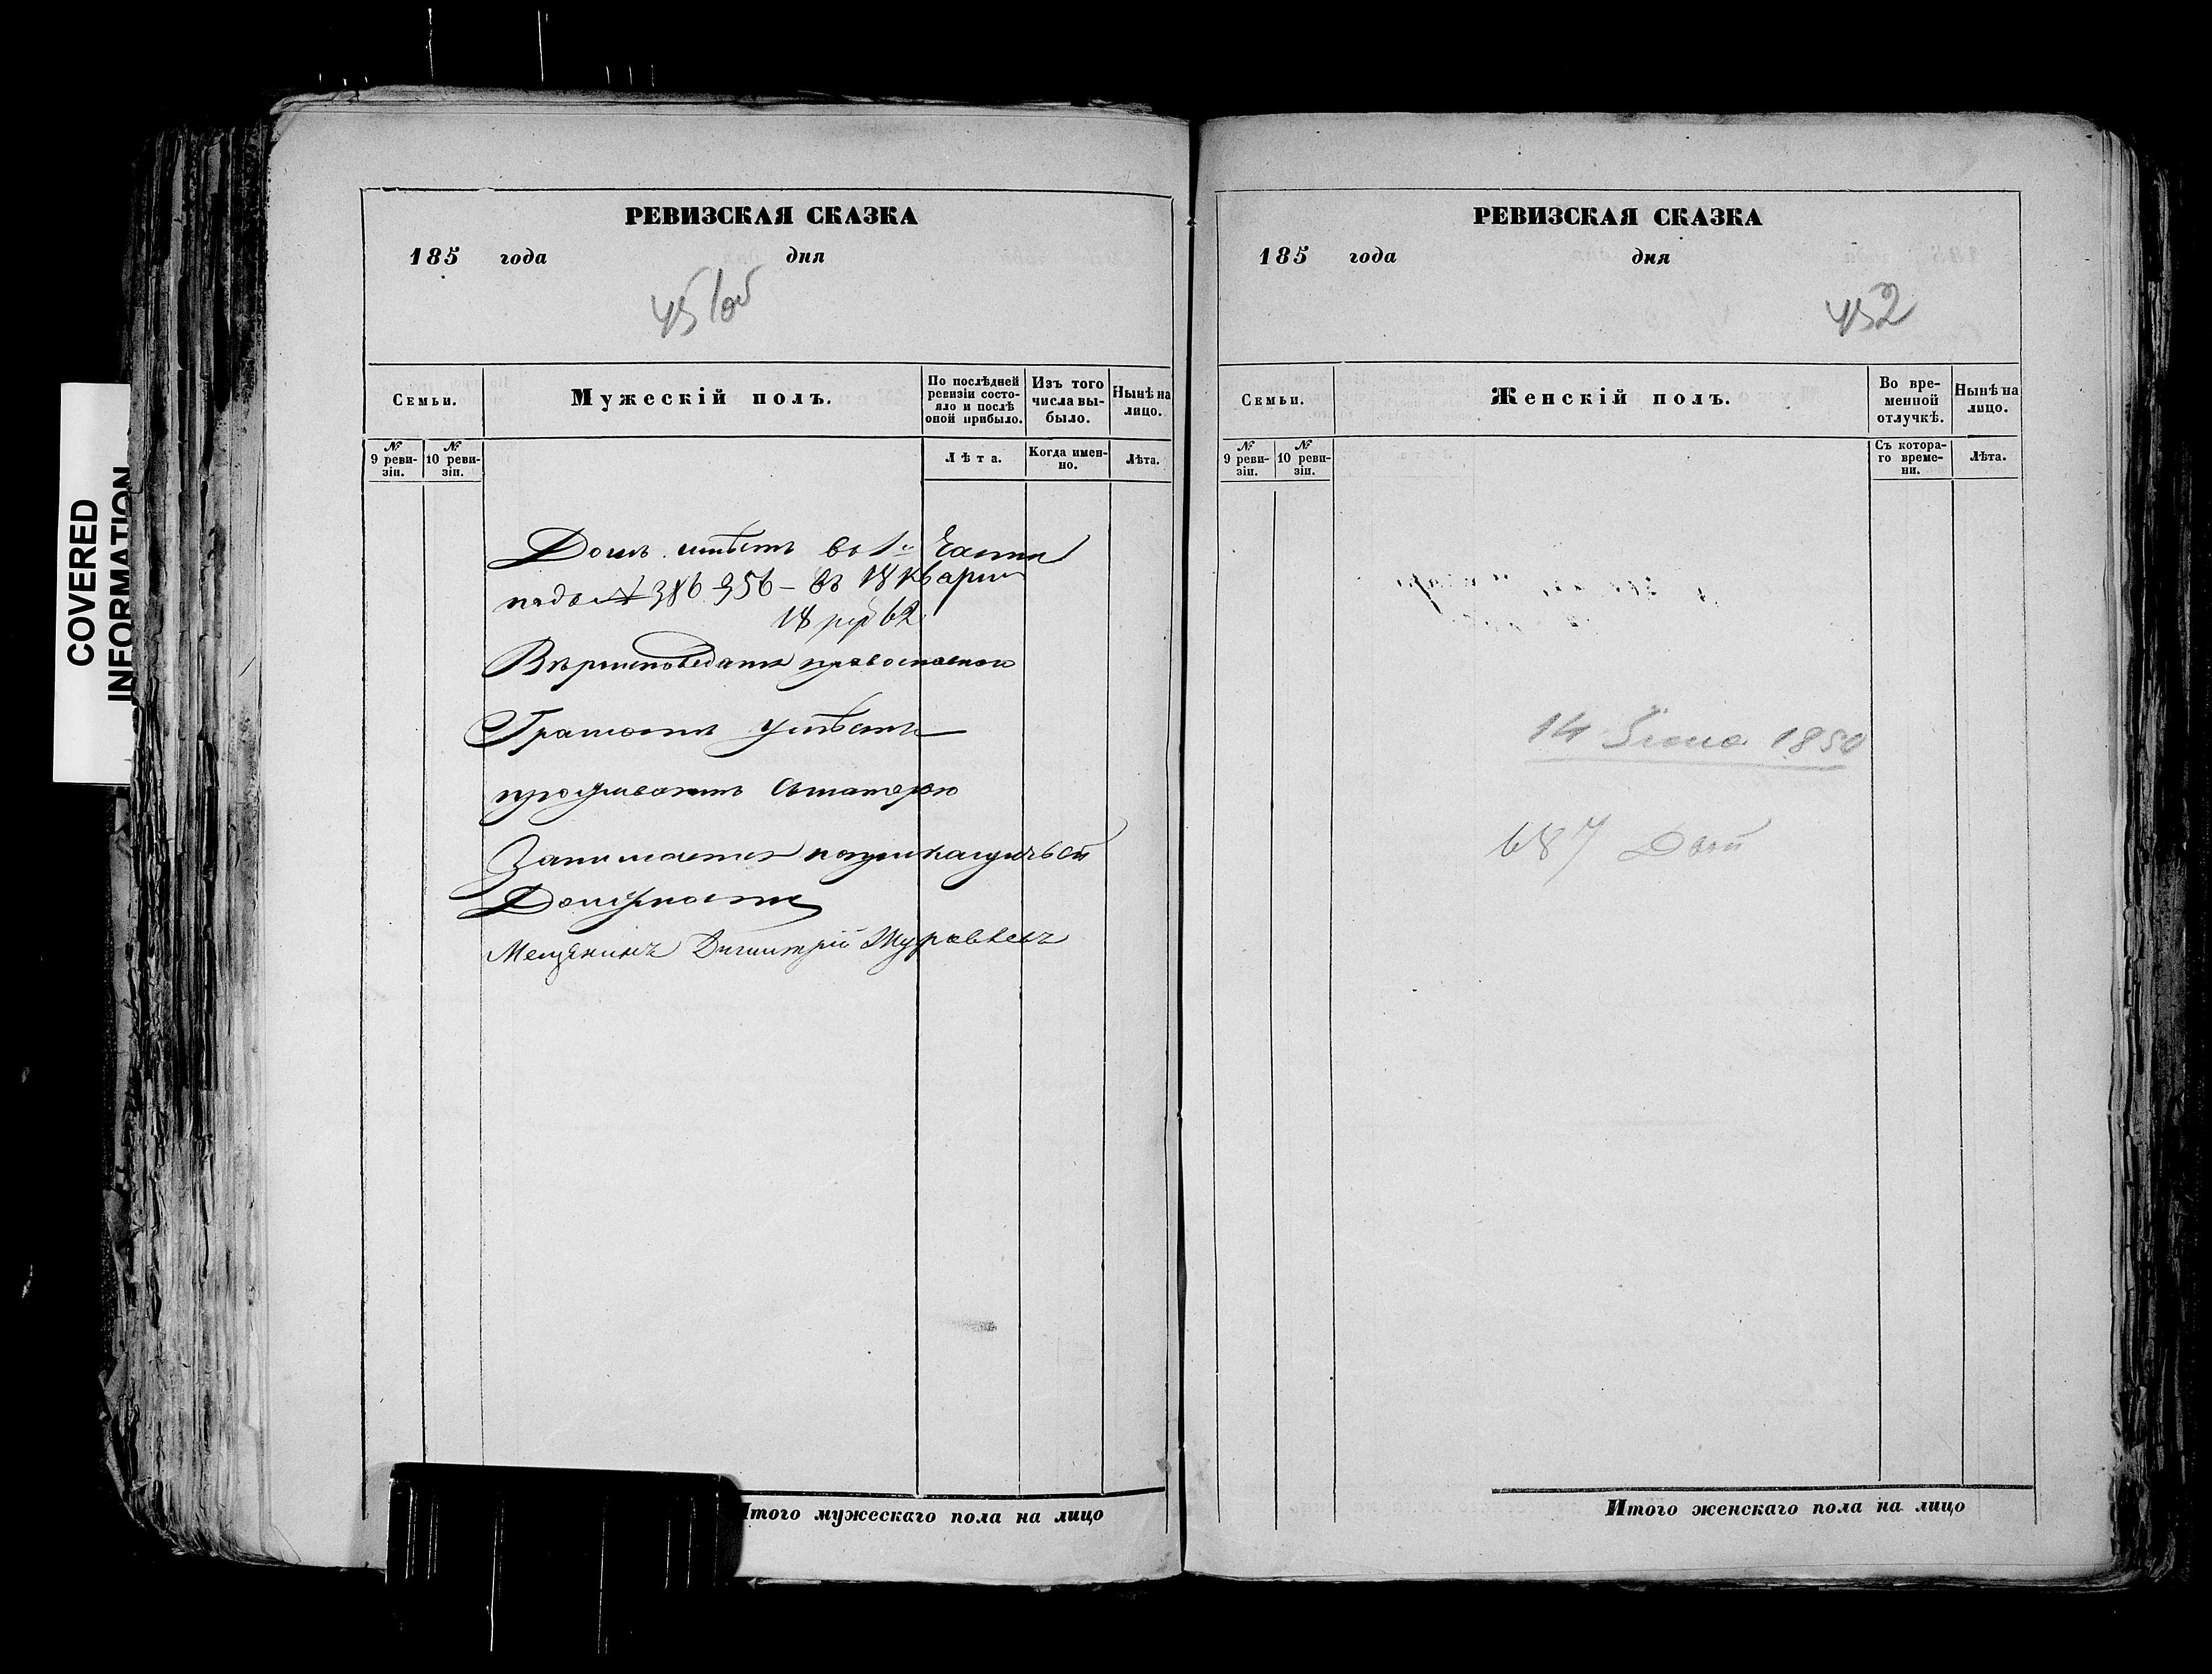 COVERED
INFORMATION
РЕВИЗСКАЯ СКАЗКА
185 года дня
451 об
Семьи.
Мужескій полъ.
По послѣдней ревизіи состо-
яло и послѣ оной прибыло.
Изъ того числа вы-
было.
Нынѣ на лицо.
№ 9 реви-
зіи.
№ 10 реви-
зіи.
Лѣта.
Когда имен-
но.
Лѣта.
Домъ имѣетъ во 1й Части
подъ № 386 356 – въ 18 Кварт
18 62
Вѣроисповеданія православнаго
Грамотѣ умѣетъ
проживаетъ Съматерью
Занимается
Должности
Мещанинъ Димитрій Журавлевъ
Итого мужескаго пола на лицо
РЕВИЗСКАЯ СКАЗКА
185 года дня
452
Семьи.
Женскій полъ.
Во вре-
менной
отлучкѣ.
Нынѣ на
лицо.
№ 9 реви-
зіи.
№ 10 реви-
зіи.
Съ котора-
го време-
ни.
Лѣта.
14 1850
687
Итого женскаго пола на лицо